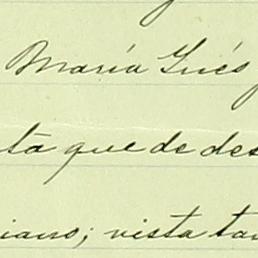 María Inés
ta que de des
iano; vista tan